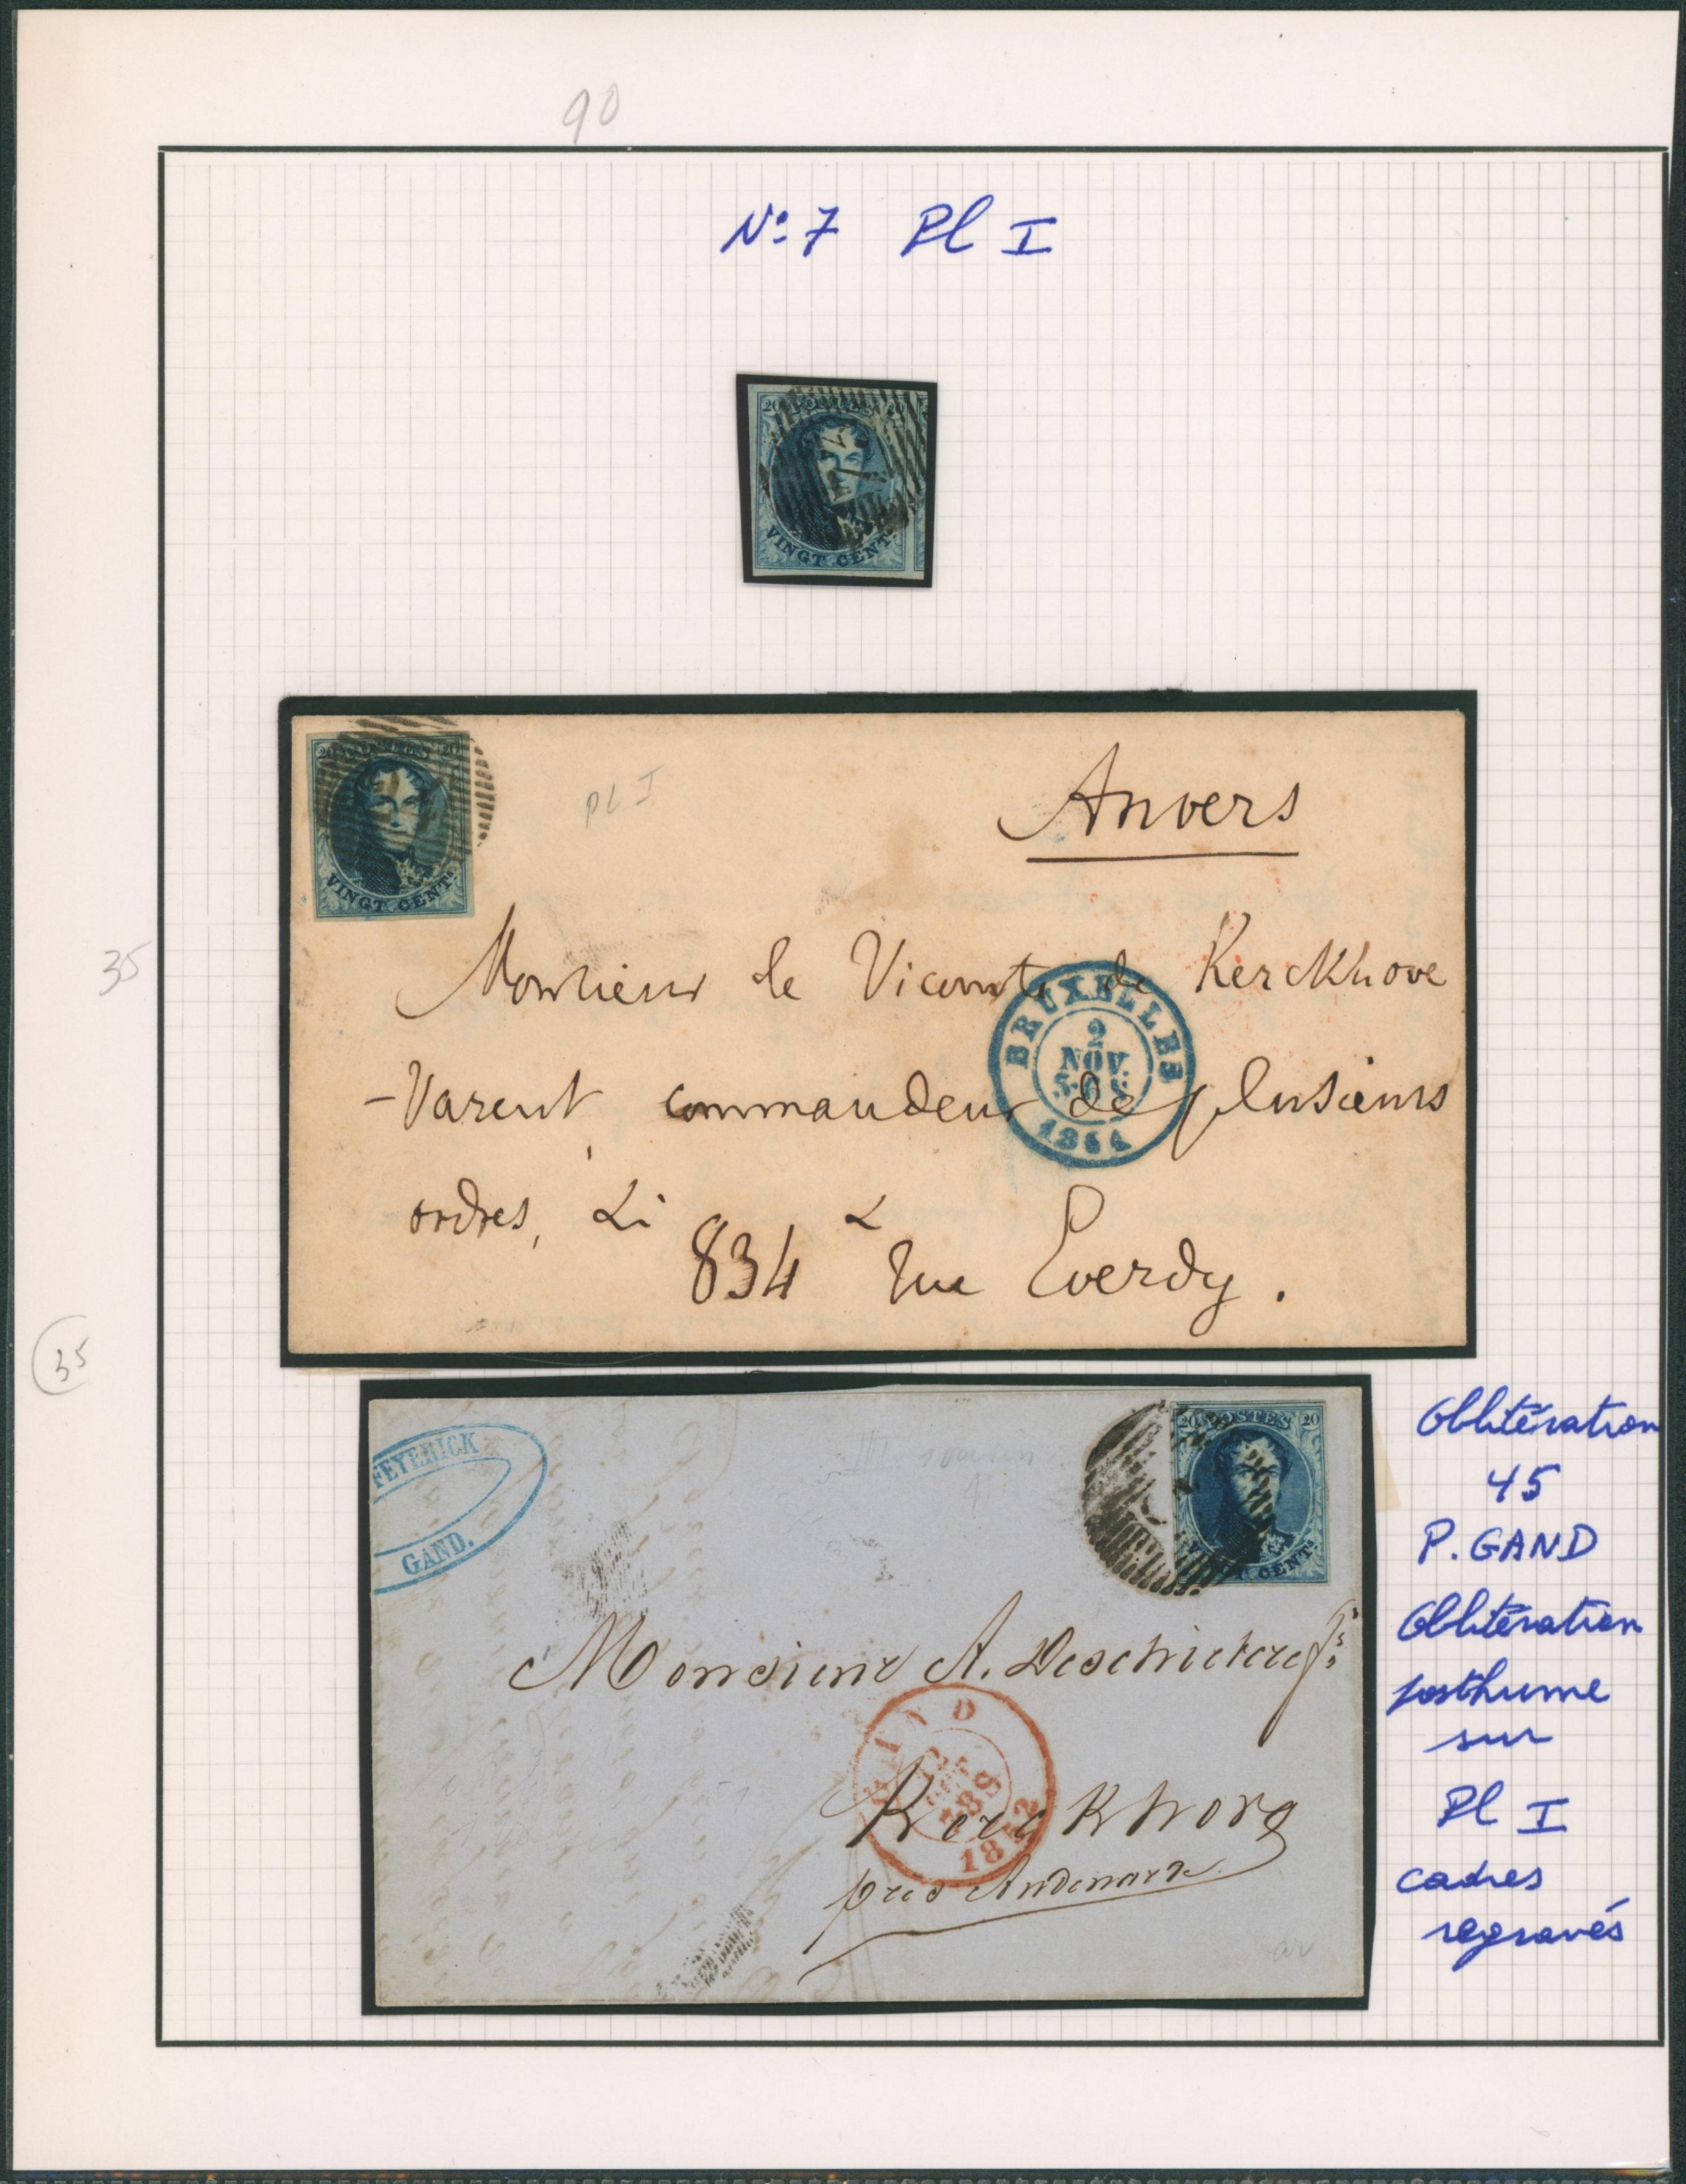 90
Nº 7 Pl I
20 POSTES 20
VINGT CENTS
20 POSTES 20
VINGT CENTS
PL I
Anvers
35
Monsieur le Vicomte de Kerckhove
BRUXELLES
2
NOV.
-Varent, commandeur de plusieurs
ordres,
834 Rue Everdy.
35
FEYERICK
GAND.
20 POSTES 20
CENTS
Oblitération
45
P. GAND
Oblitération
posthume
sur
Pl I
cadres
regravés
Monsieur A.
GAND
12
185
1852
Kerckhove
près Audenarde